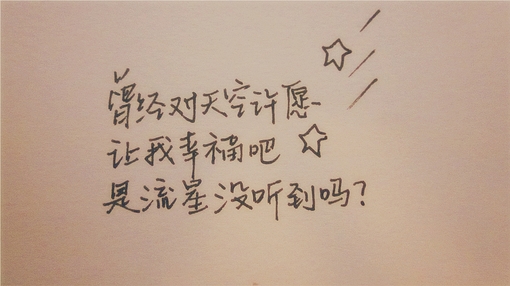 曾经对天空许愿
让我幸福吧
是流星没听到吗?